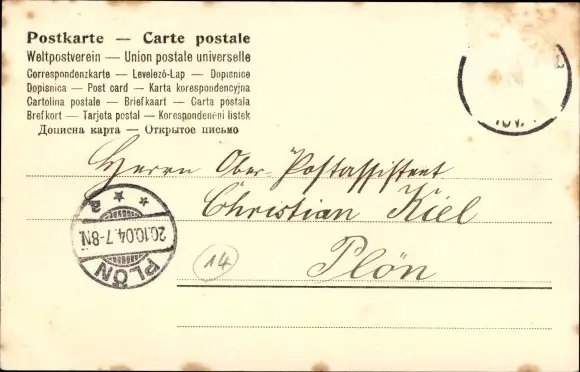 Postkarte — Carte postale
Weltpostverein — Union postale universelle
Correspondenzkarte — Levelező-Lap — Dopisnice
Dopisnica — Post card — Karta korespondencyjna
Cartolina postale — Briefkaart — Carta postala
Brefkort — Tarjeta postal — Korespondencni listek
Дописна карта — Открытое письмо
Herrn Ober-Postassistent
Christian Kiel
Plön
* * a
20.10.04.7-8N.
PLÖN
14